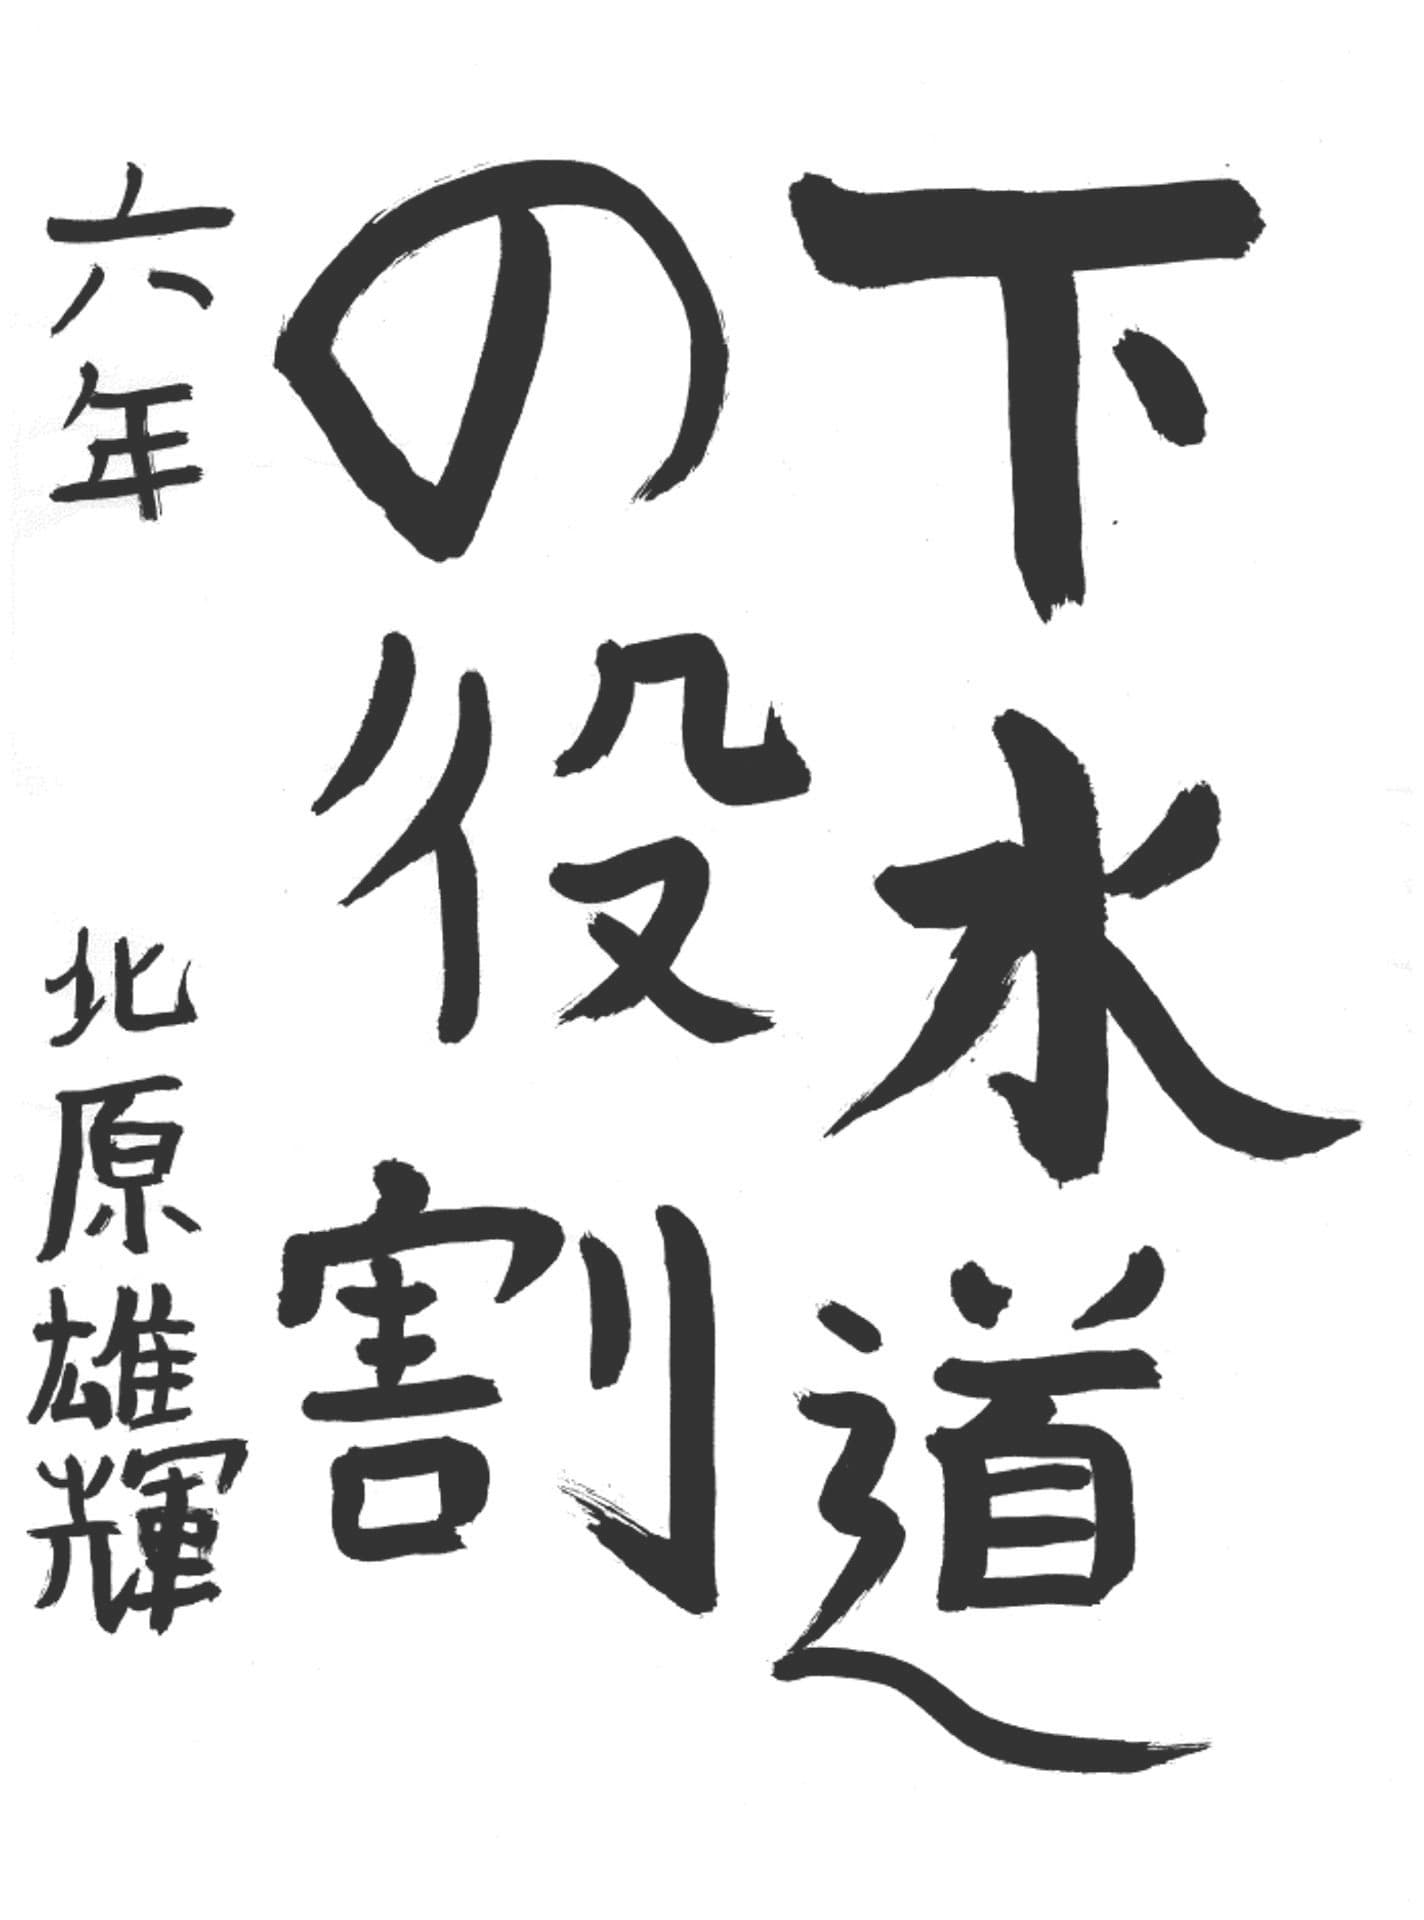 下水道
の役割
六年 北原雄輝